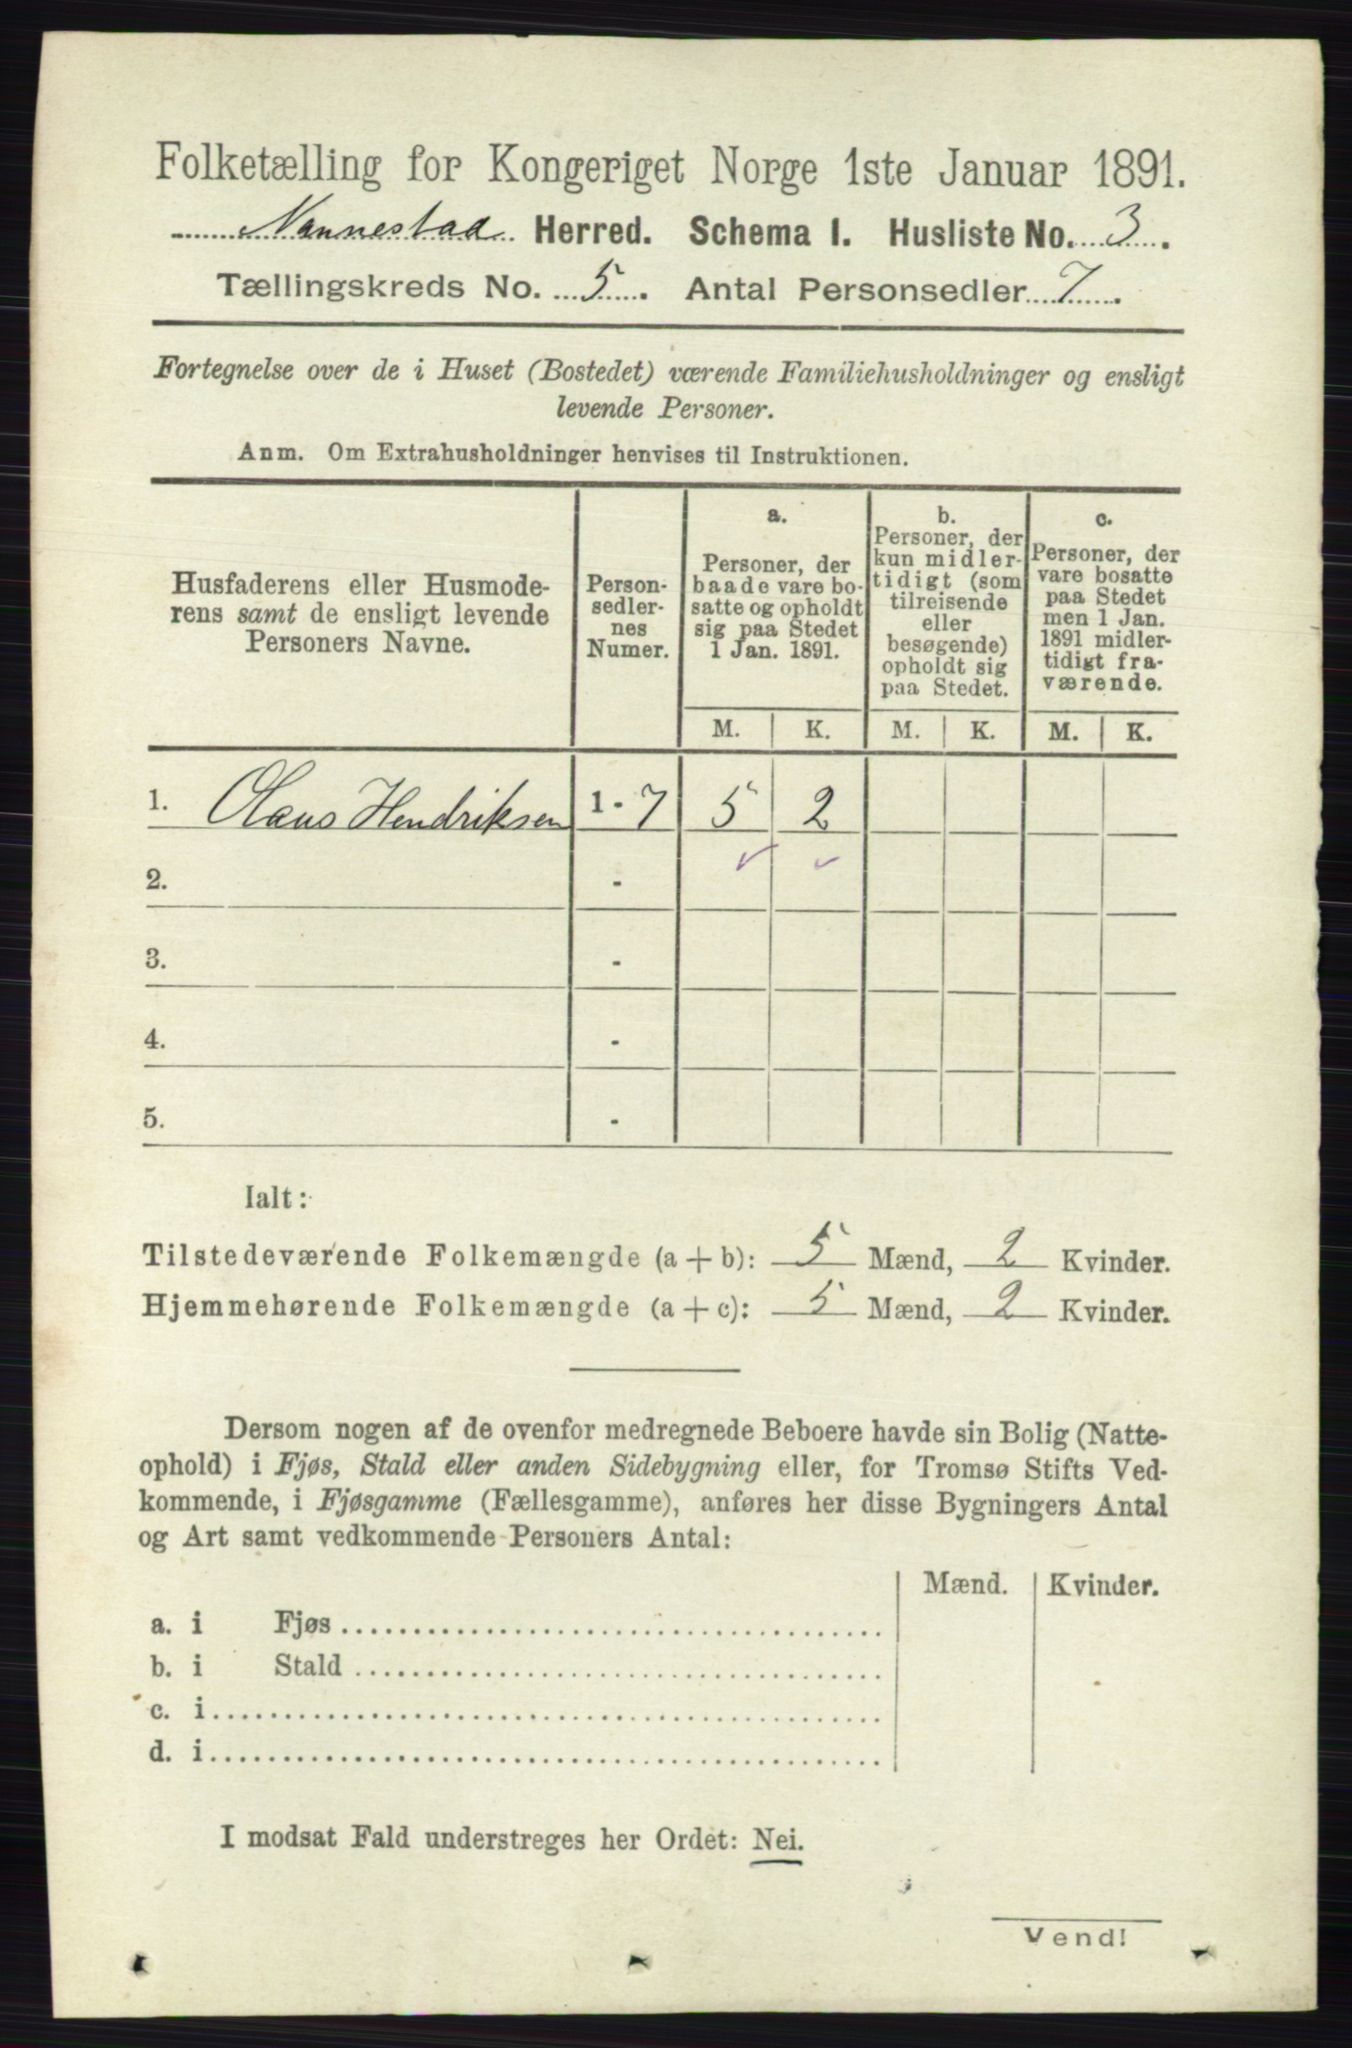 Folketælling for Kongeriget Norge 1ste Januar 1891.
Nannestad Herred. Schema I. Husliste No. 3.
Tællingskreds No. 5. Antal Personsedler 7.
Fortegnelse over de i Huset (Bostedet) værende Familiehusholdninger og ensligt
levende Personer.
Anm. Om Extrahusholdninger henvises til Instruktionen.
Husfaderens eller Husmode-
rens samt de ensligt levende
Personers Navne.
Person-
sedler-
nes
Numer.
a.
Personer, der
baade vare bo-
satte og opholdt
sig paa Stedet
1 Jan. 1891.
b.
Personer, der
kun midler-
tidigt (som
tilreisende
eller
besøgende)
opholdt sig
paa Stedet.
c.
Personer, der
vare bosatte
paa Stedet
men 1 Jan.
1891 midler-
tidigt fra-
værende.
M. K. M. K. M. K.
1. Olaus Hendriksen 1 - 7 5 2
2. -
3. -
4. -
5. -
Ialt:
Tilstedeværende Folkemængde (a + b): 5 Mænd, 2 Kvinder.
Hjemmehørende Folkemængde (a + c): 5 Mænd, 2 Kvinder.
Dersom nogen af de ovenfor medregnede Beboere havde sin Bolig (Natte-
ophold) i Fjøs, Stald eller anden Sidebygning eller, for Tromsø Stifts Ved-
kommende, i Fjøsgamme (Fællesgamme), anføres her disse Bygningers Antal
og Art samt vedkommende Personers Antal:
Mænd. Kvinder.
a. i Fjøs
b. i Stald
c. i
d. i
I modsat Fald understreges her Ordet: Nei.
Vend!